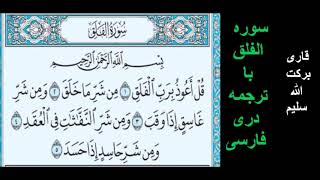 سُورَةُ الْفَلَقِ
بِسْمِ اللَّهِ الرَّحْمَٰنِ الرَّحِيمِ
قُلْ أَعُوذُ بِرَبِّ الْفَلَقِ ١ مِن شَرِّ مَا خَلَقَ ٢ وَمِن شَرِّ
غَاسِقٍ إِذَا وَقَبَ ٣ وَمِن شَرِّ النَّفَّاثَاتِ فِي الْعُقَدِ ٤
وَمِن شَرِّ حَاسِدٍ إِذَا حَسَدَ ٥
سوره
الفلق
با
ترجمه
دری
فارسی
قاری
برکت
الله
سلیم